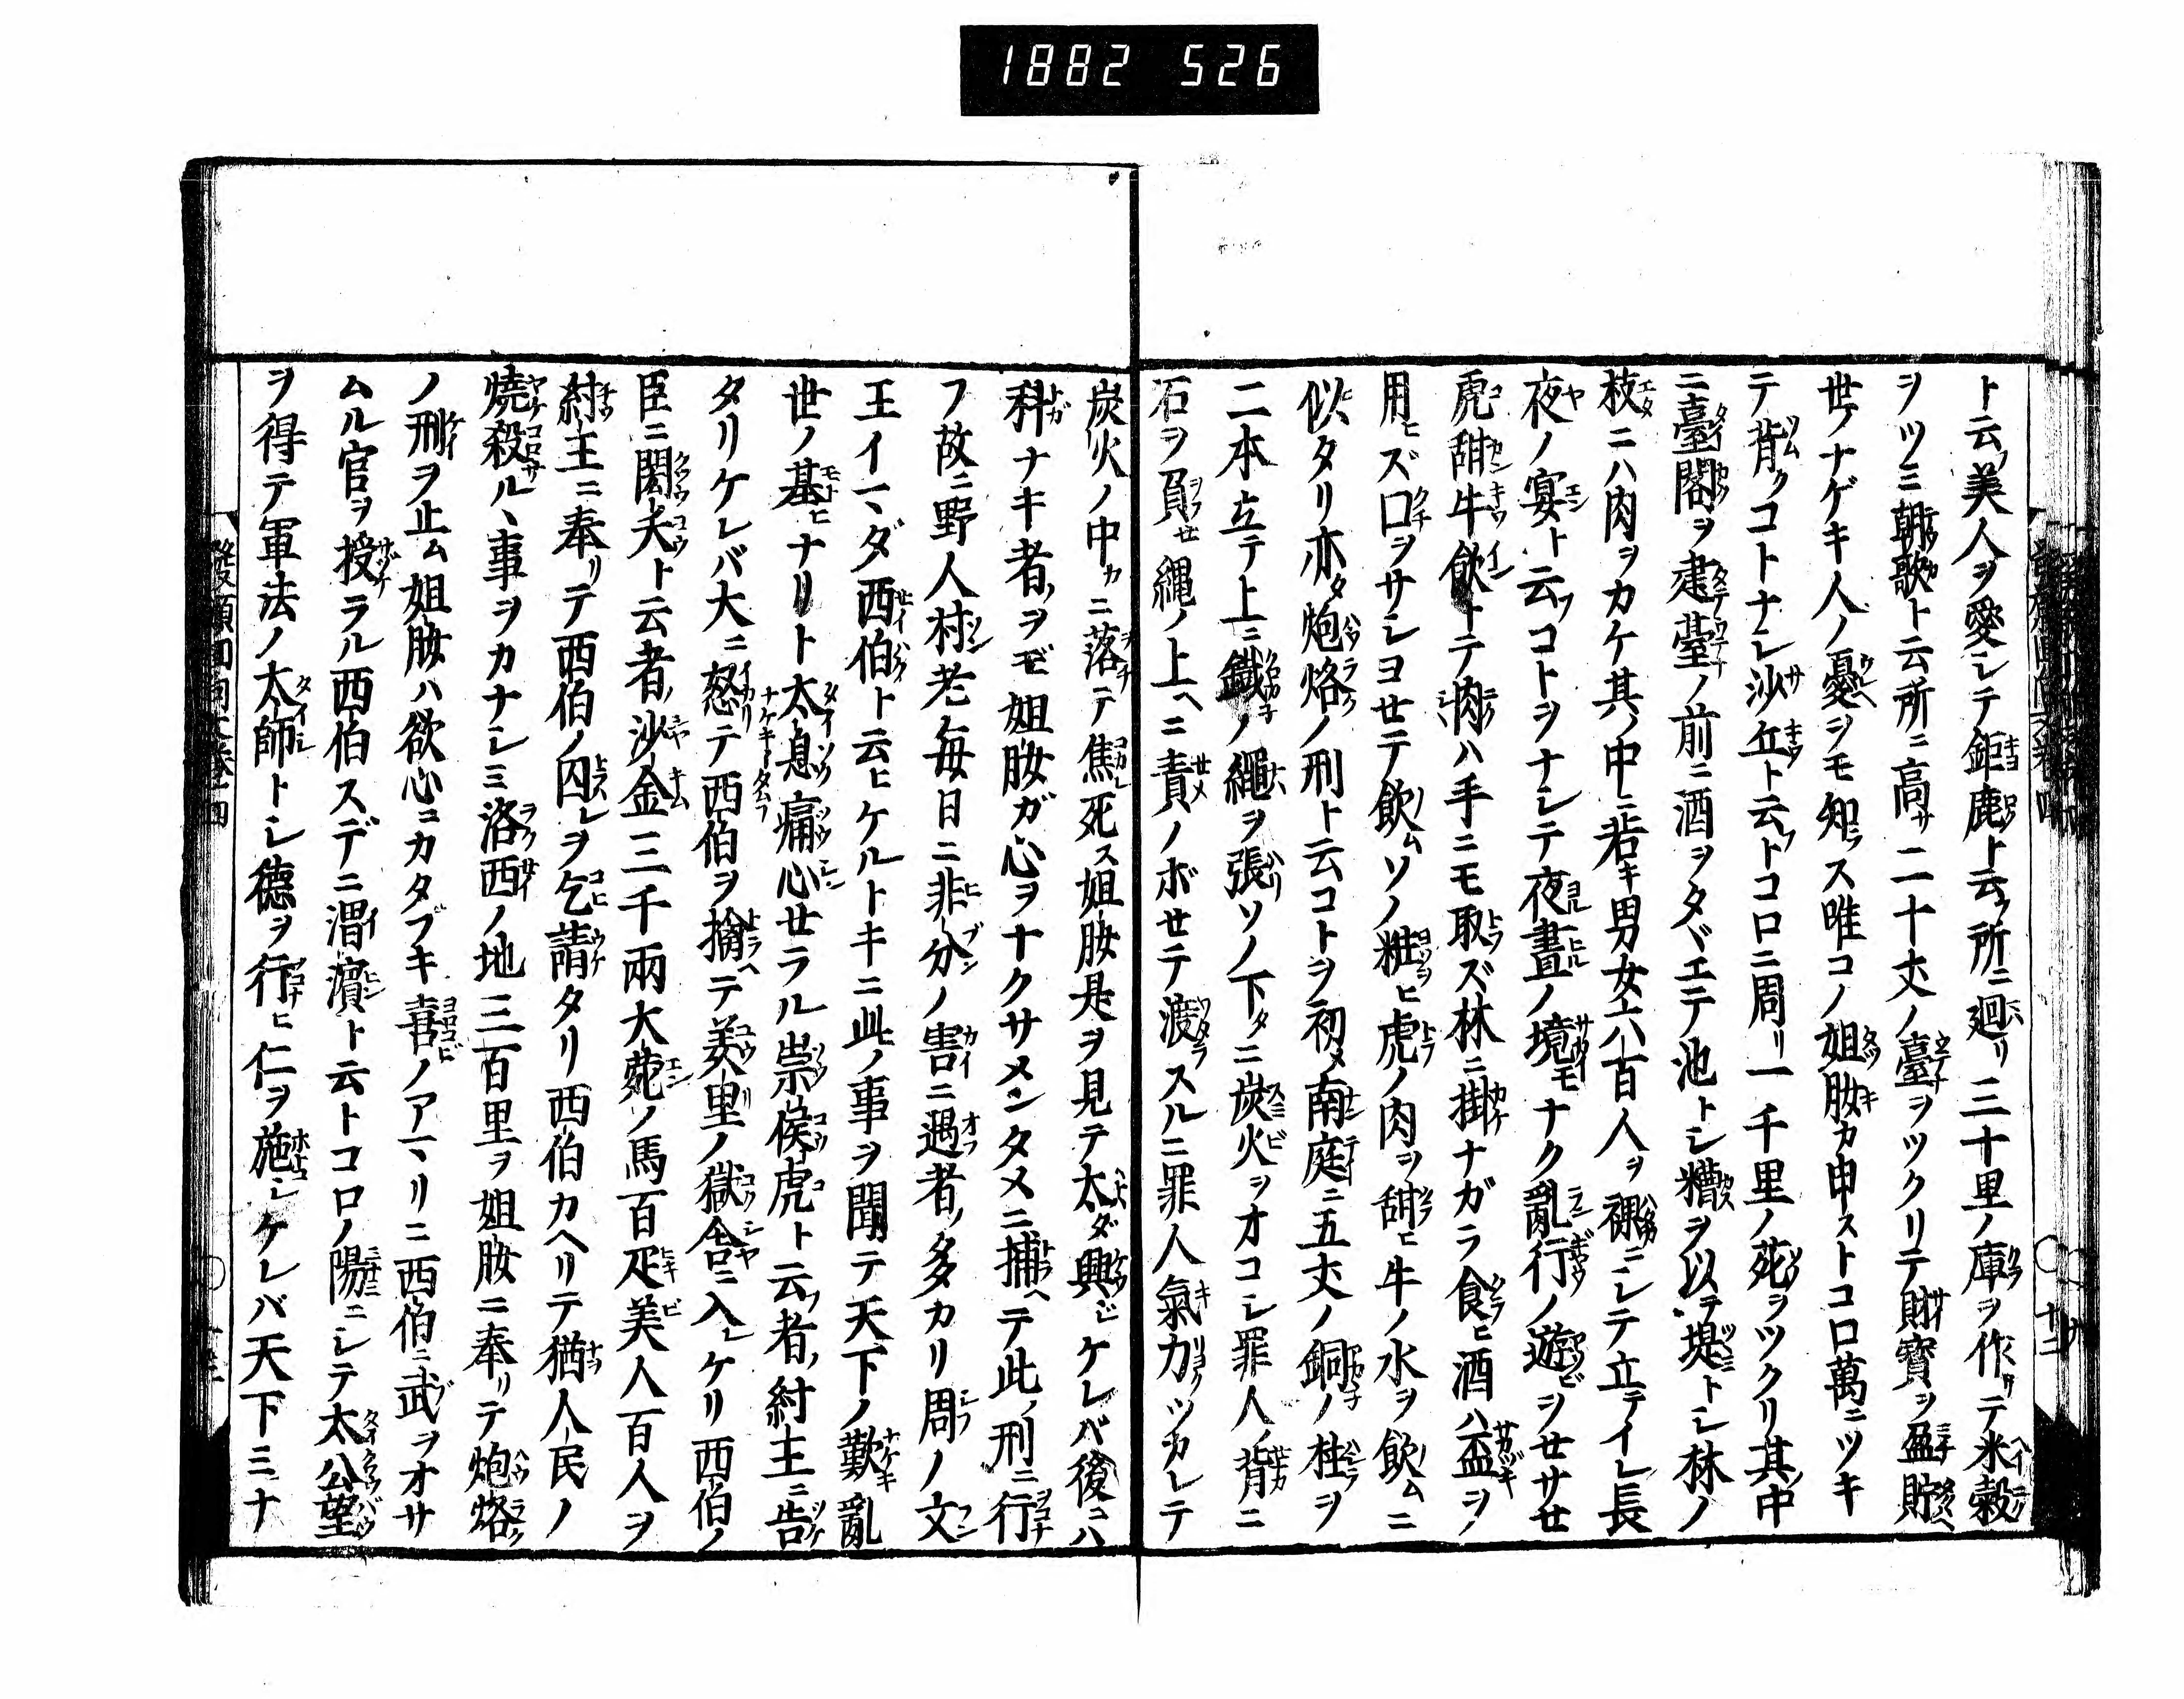 1882 526
ト云フ美人ヲ愛シテ鉅鹿ト云フ所ニ廻リ三十里ノ庫ヲ作ツテ米穀
ヲツミ朝歌ト云所ニ高サ二十丈ノ臺ヲツクリテ財寶ヲ盈貯
世ノナゲキ人ノ憂ヲモ知ラス唯コノ妲妃カ申ストコロ萬ニツキ
テ背クコトナシ沙丘ト云フトコロニ周リ一千里ノ苑ヲツクリ其中
ニ臺閣ヲ建テ臺ノ前ニ酒ヲタヾエテ池トシ糟ヲ以テ堤トシ林ノ
枝ニハ肉ヲカケ其ノ中ニ若キ男女六八百人ヲ裸ニシテ立テイレ長
夜ノ宴ト云フコトヲナシテ夜晝ノ境モナク亂行ノ遊ビヲせサせ
虎甜牛飲トテ肉ハ手ニモ取ズ林ニ掛ナガラ食ヒ酒ハ盃ヲ
用ヒズ口ヲサシヨせテ飲ムソノ粧ヒ虎ノ肉ヲ甜ヒ牛ノ水ヲ飲ムニ
似タリ亦タ炮烙ノ刑ト云コトヲ初メ南庭ニ五丈ノ銅ノ柱ヲ
二本立テ上ニ鐵ノ繩ヲ張リソノ下タニ炭火ヲオコシ罪人ノ背ニ
石ヲ負せ縄ノ上ヘニ責ノボせテ渡スルニ罪人氣力ツカレテ
炭火ノ中カニ落テ焦死ス妲妃是ヲ見テ太ダ興ジケレバ後ニハ
科ナキ者ヲモ妲妃ガ心ヲナクサメンタメニ捕ヘテ此ノ刑ニ行
フ故ニ野人村老毎日ニ非分ノ害ニ遇者多カリ周ノ文
王イマダ西伯ト云ヒケルトキニ此ノ事ヲ聞テ天下ノ歎亂
世ノ基ヒナリト太息痛心せラル崇侯虎ト云フ者紂主ニ告
タリケレバ大ニ怒テ西伯ヲ擒テ羑里ノ獄舎ニ入レケリ西伯ノ
臣ニ閎夭ト云者ノ沙金三千兩大菀ノ馬百疋美人百人ヲ
紂主ニ奉リテ西伯ノ囚レヲ乞請タリ西伯カヘリテ猶人民ノ
燒殺サルヽ事ヲカナシミ洛西ノ地三百里ヲ妲妃ニ奉リテ炮烙
ノ刑ヲ止ム妲妃ハ欲心コカタブキ喜ノアマリニ西伯ニ武ヲオサ
ムル官ヲ授ラル西伯スデニ渭濱ト云トコロノ陽ニシテ太公望
ヲ得テ軍法ノ太師トシ德ヲ行ヒ仁ヲ施シケレバ天下ミナ